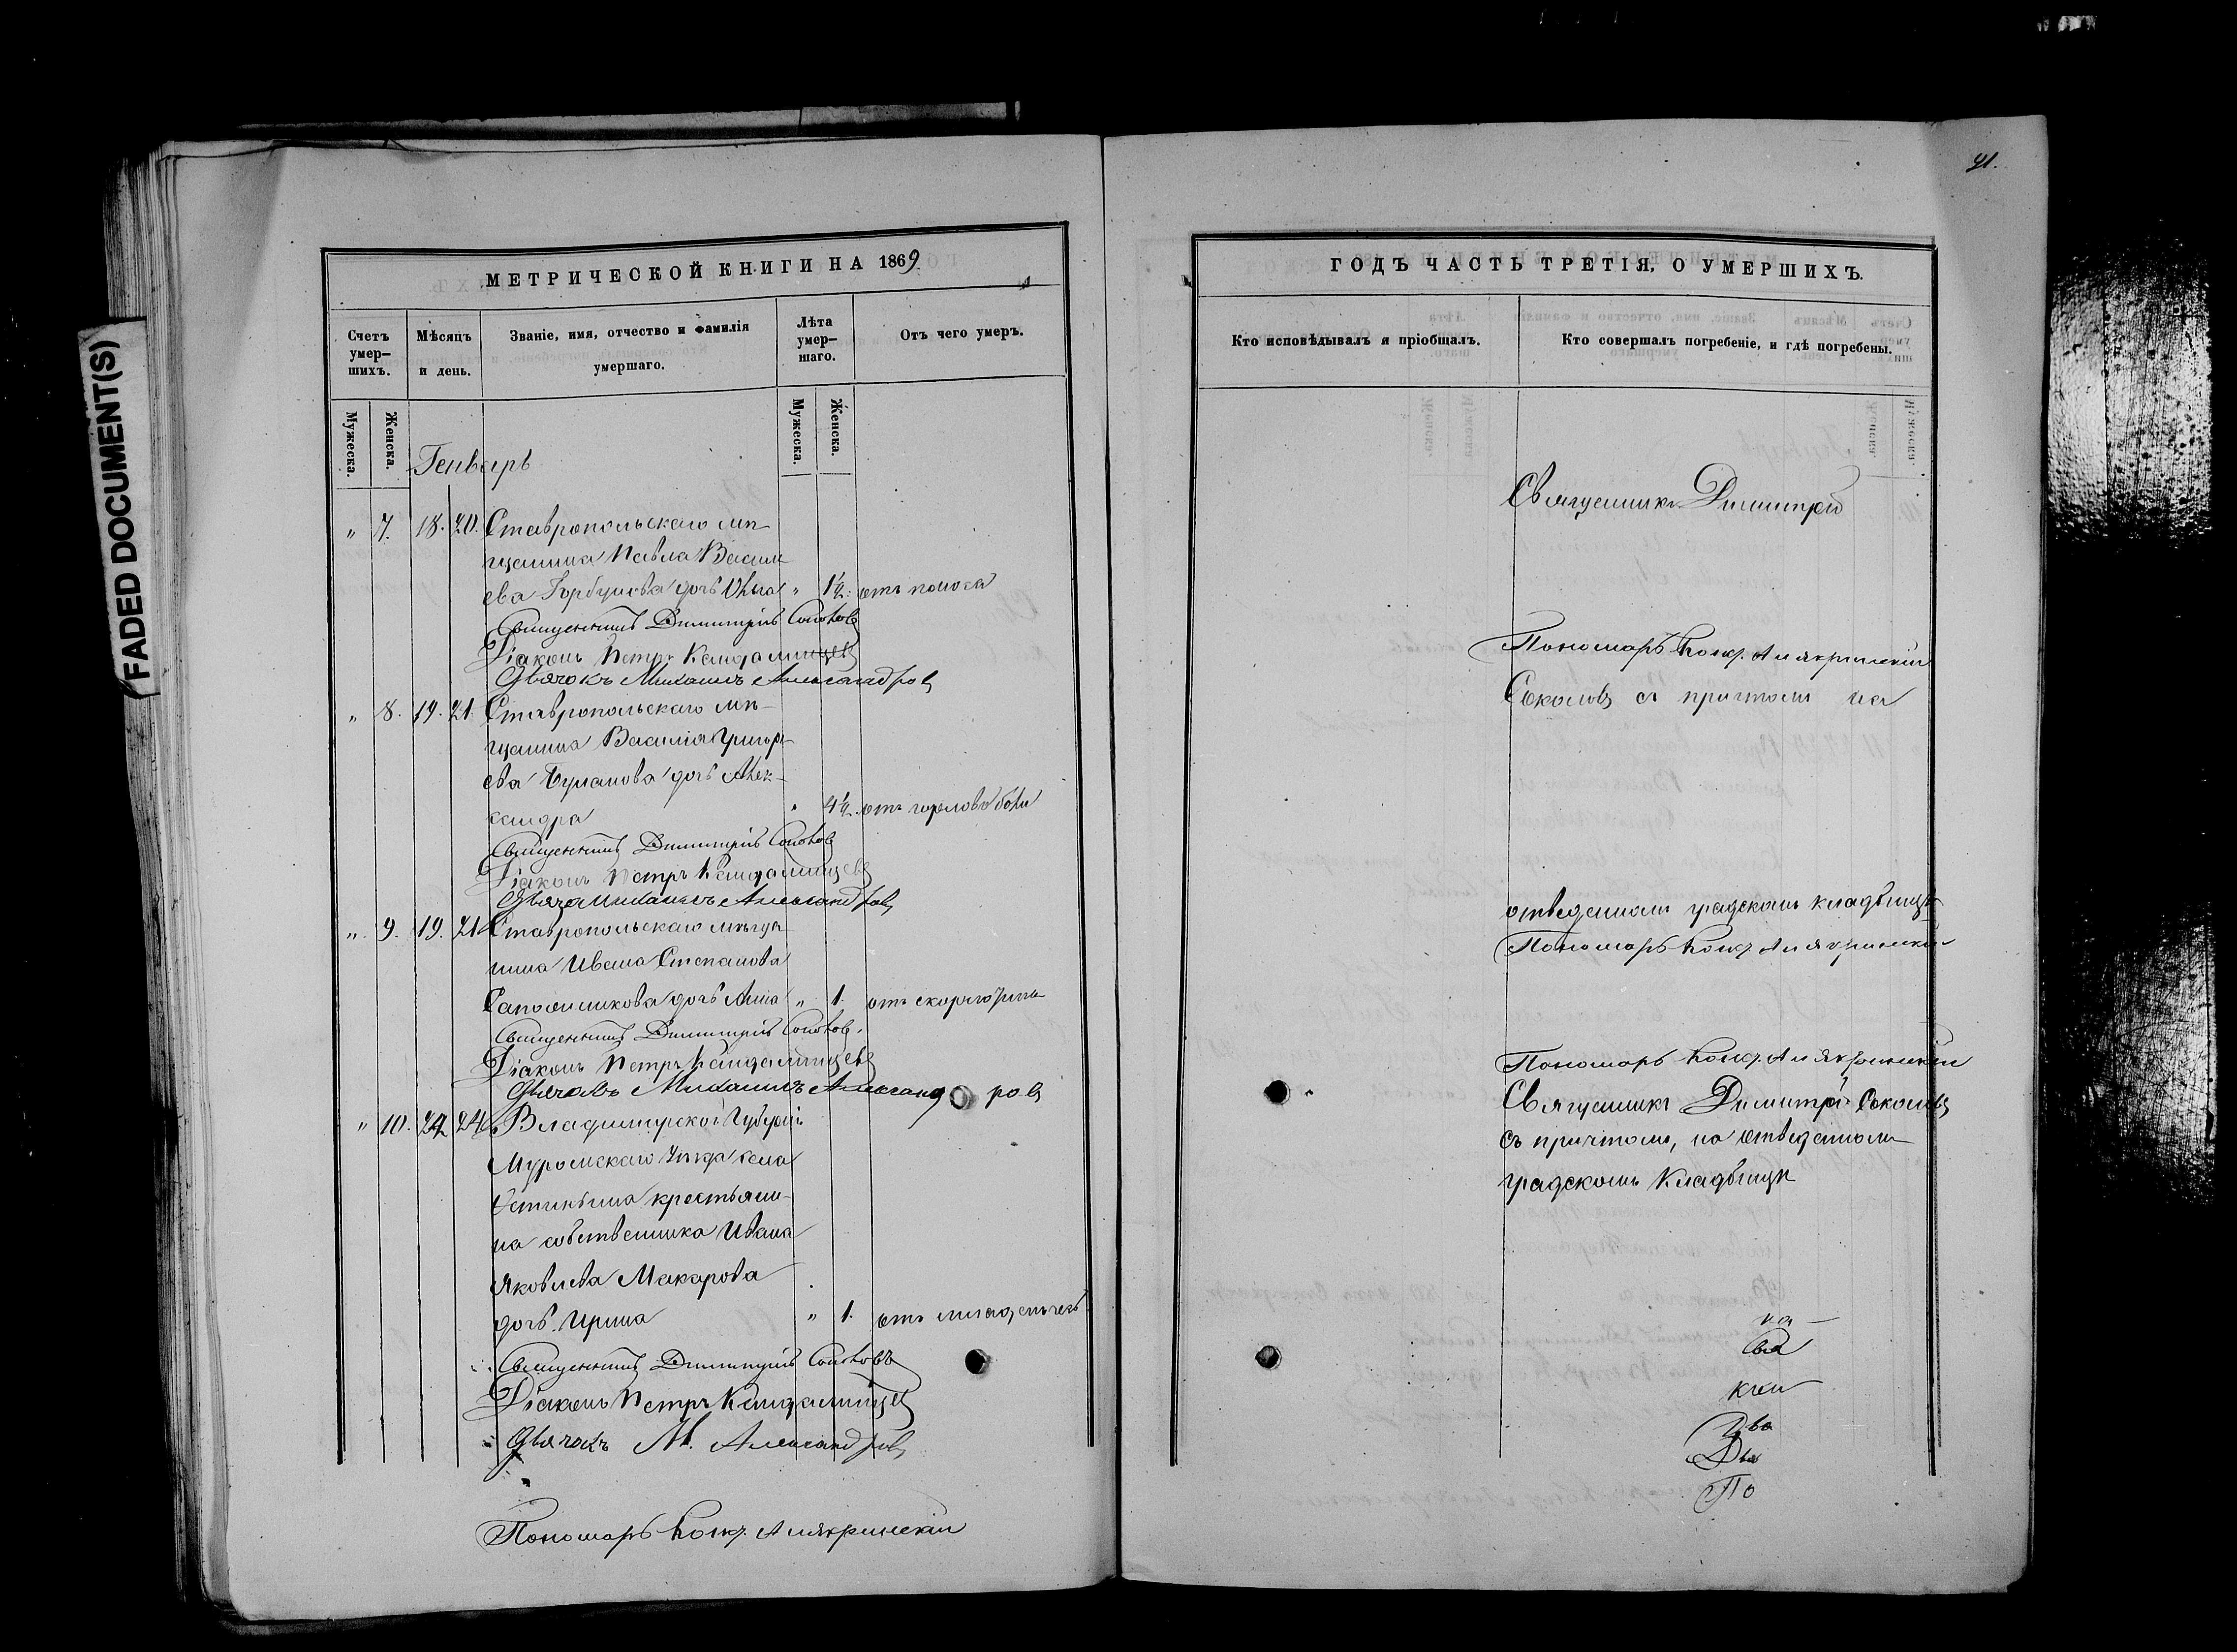 FADED DOCUMENT(S)
МЕТРИЧЕСКОЙ КНИГИ НА 1869
Счетъ умер-шихъ.
Мѣсяцъ и день.
Званіе, имя, отчество и фамилія умершаго.
Лѣта умер-шаго.
Отъ чего умеръ.
Мужеска.
Женска.
Мужеска.
Женска.
Генварь
" 7. 18. 20. Ставропольскаго мѣ-
щанина Павла Василь
ева Горбунова дочь Ольга " 1½. отъ поноса
Священникъ Димитрій Соколовъ
Діаконъ Петръ
Дьячокъ Михаилъ Александровъ
" 8. 19. 21. Ставропольскаго мѣ-
щанина Василія Григорь-
ева дочь Алек-
сандра " 4½. отъ горловой боли
Священникъ Димитрій Соколовъ
Діаконъ Петръ
Дьячо Михаилъ Александровъ
" 9. 19. 21 Ставропольскаго мѣща
нина Ивана Степанова
Сапожникова дочь Анна " 1. отъ скорлотины
Священникъ Димитрій Соколовъ.
Діаконъ Петръ
Дьячокъ Михаилъ Александ ровъ
" 10. 22 24 Владимирской Губерніи
Муромскаго Уѣзда села
крестьяни-
на собственника Ивана
Яковлева Макарова
дочь Ирина " 1. отъ
Священникъ Димитрій Соколовъ
Діаконъ Петръ
Дьячокъ М. Александровъ
Пономарь
41.
ГОДЪ ЧАСТЬ ТРЕТІЯ, О УМЕРШИХЪ.
Кто исповѣдывалъ и пріобщалъ.
Кто совершалъ погребеніе, и гдѣ погребены.
Священникъ Димитрій
Пономарь
Соколовъ съ причтомъ на
отведенномъ градскомъ кладбищѣ
Пономарь
Пономарь
Священникъ Димитрій Соколовъ
съ причтомъ, на отведенномъ
градскомъ кладбищѣ
на
Свя
кни
Дья
По